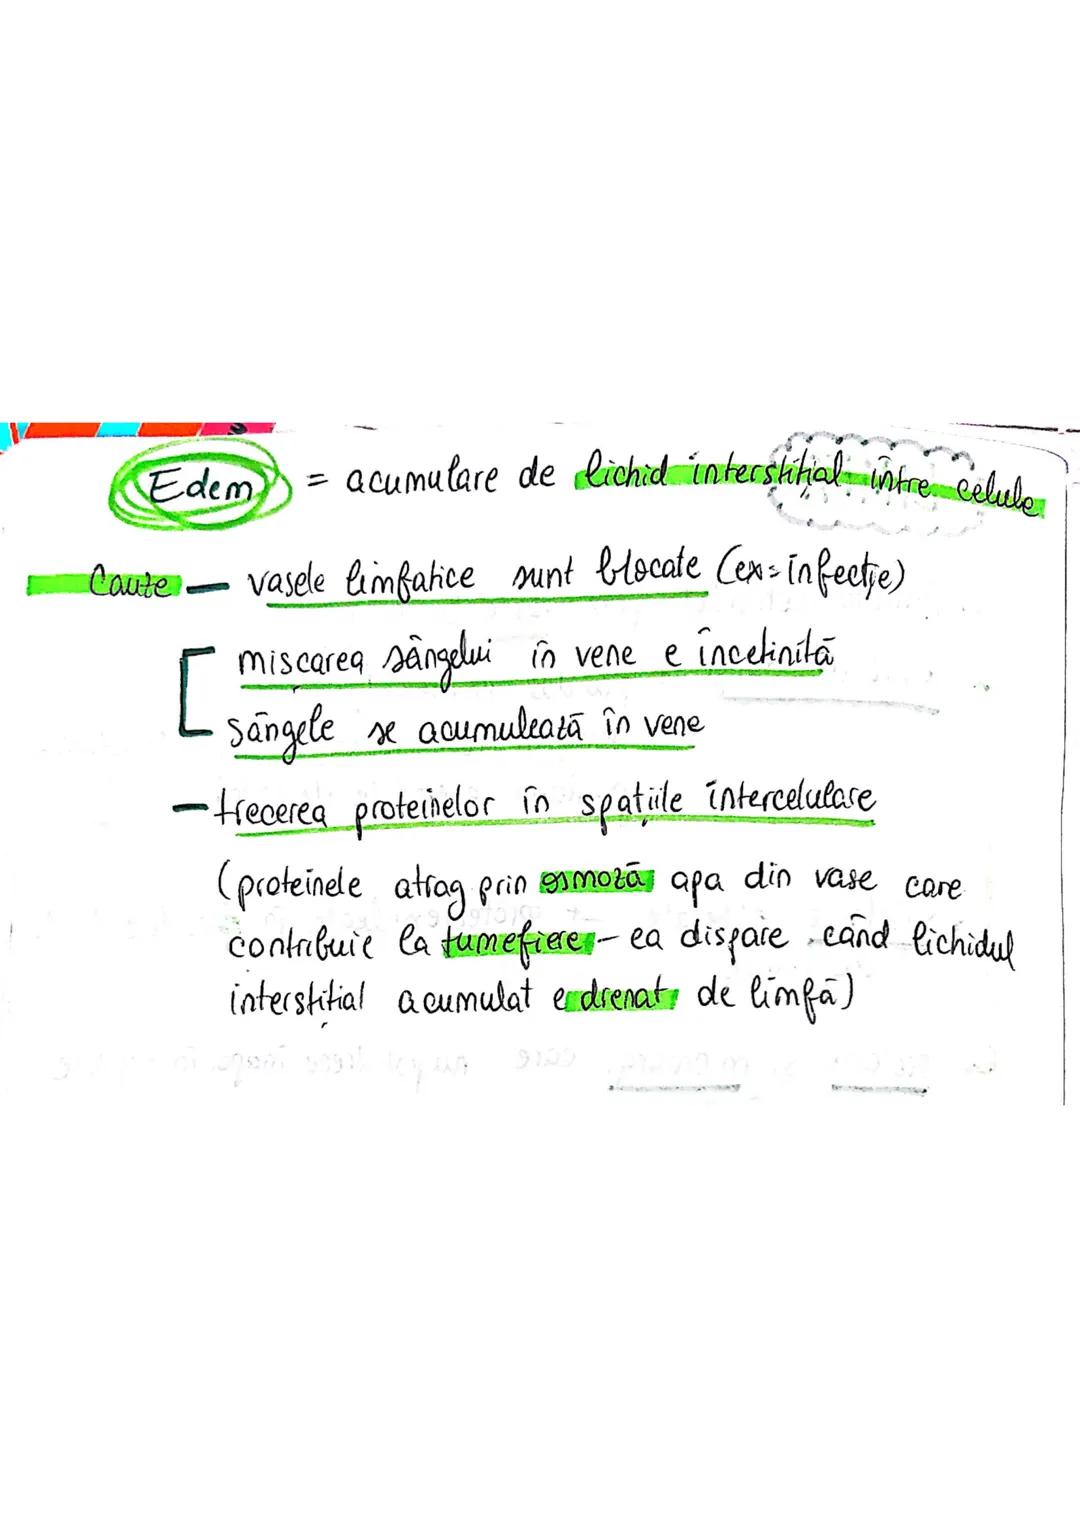 Edem = acumulare de lichid interstițial între celule
Cauze — vasele limfatice sunt blocate (ex= infecție)
mișcarea sângelui în vene e încetinită
sângele se acumulează în vene
— trecerea proteinelor în spațiile intercelulare
(proteinele atrag prin osmoză apa din vase care
contribuie la tumefiere - ea dispare când lichidul
interstițial acumulat e drenat de limfă)